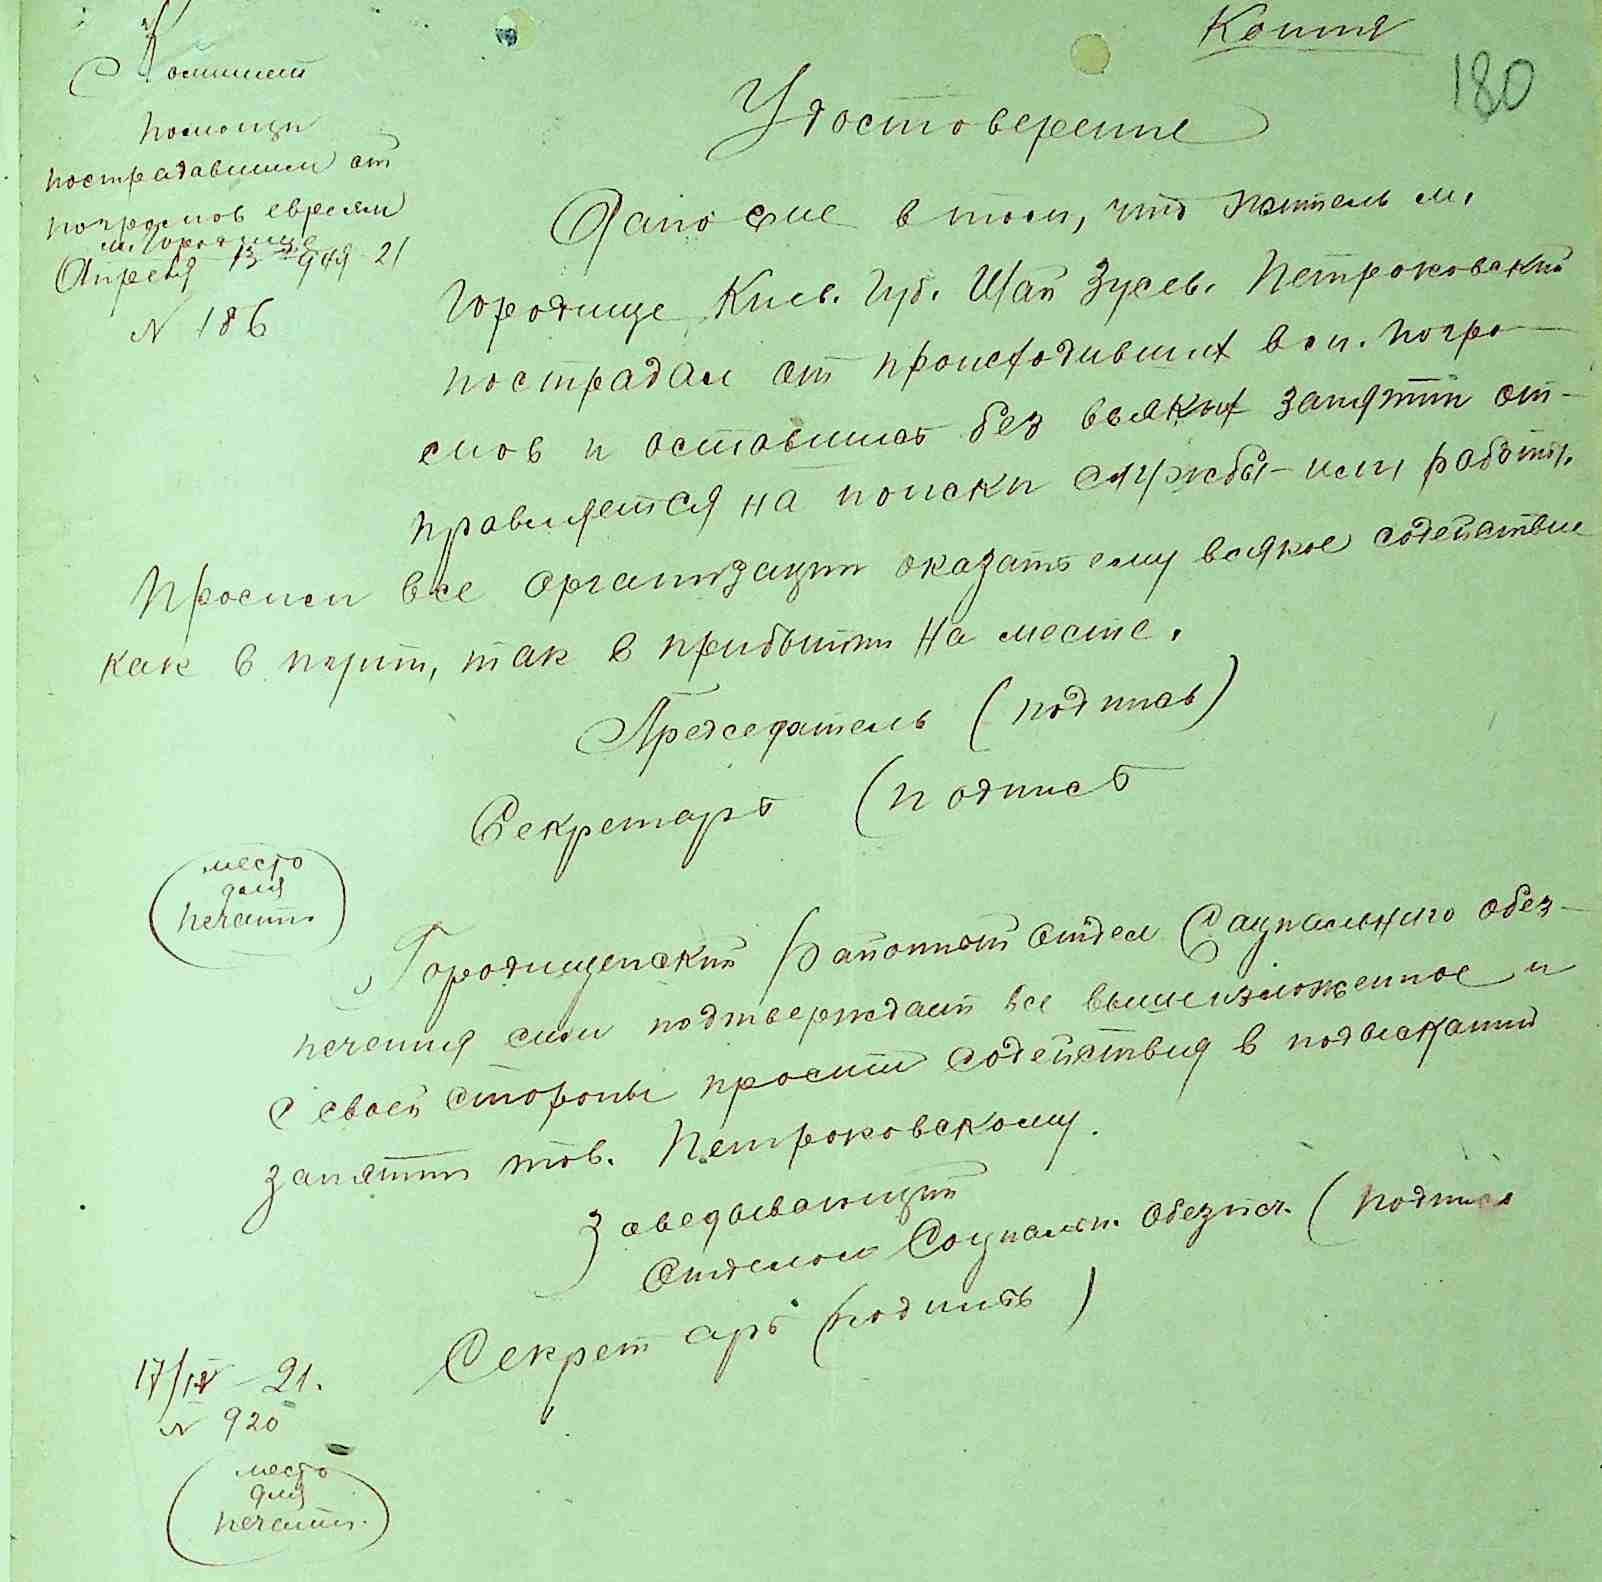 Копия
180
Комитет
помощи
пострадавшим от
погромов евреям
м. Городище
Апреля 13 дня 21
N 186
Удостоверение
Дано сие в том, что житель м.
Городище Киев. Губ. Шая Зусев. Петроковский
пострадал от происходивших в м. погро-
мов и оставшись без всяких занятий от-
правляется на поиски службы или работы.
Просим все организации оказать ему всякое содействие
как в пути, так в прибытии на месте.
Председатель (подпись)
Секретарь (подпись
место
для
печати.
Городищенский Районный отдел Социального обез-
печения сим подтверждает все вышеизложенное и
с своей стороны просит содействия в подыскании
занятий тов. Петроковскому.
Заведывающий
Отделом Социальн. Обезпеч. (подпись
Секретарь (подпись)
17/IV - 21.
N 920
место
для
печати.